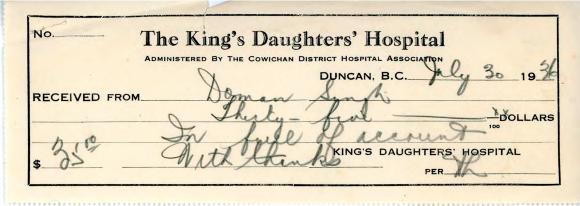 No.
The King's Daughters' Hospital
Administered By The Cowichan District Hospital Association
Duncan, B.C. July 30 1936
Received From Doman Singh
Thirty-five xx/100 Dollars
In full of account
$ 35.00 With thanks King's Daughters' Hospital
Per